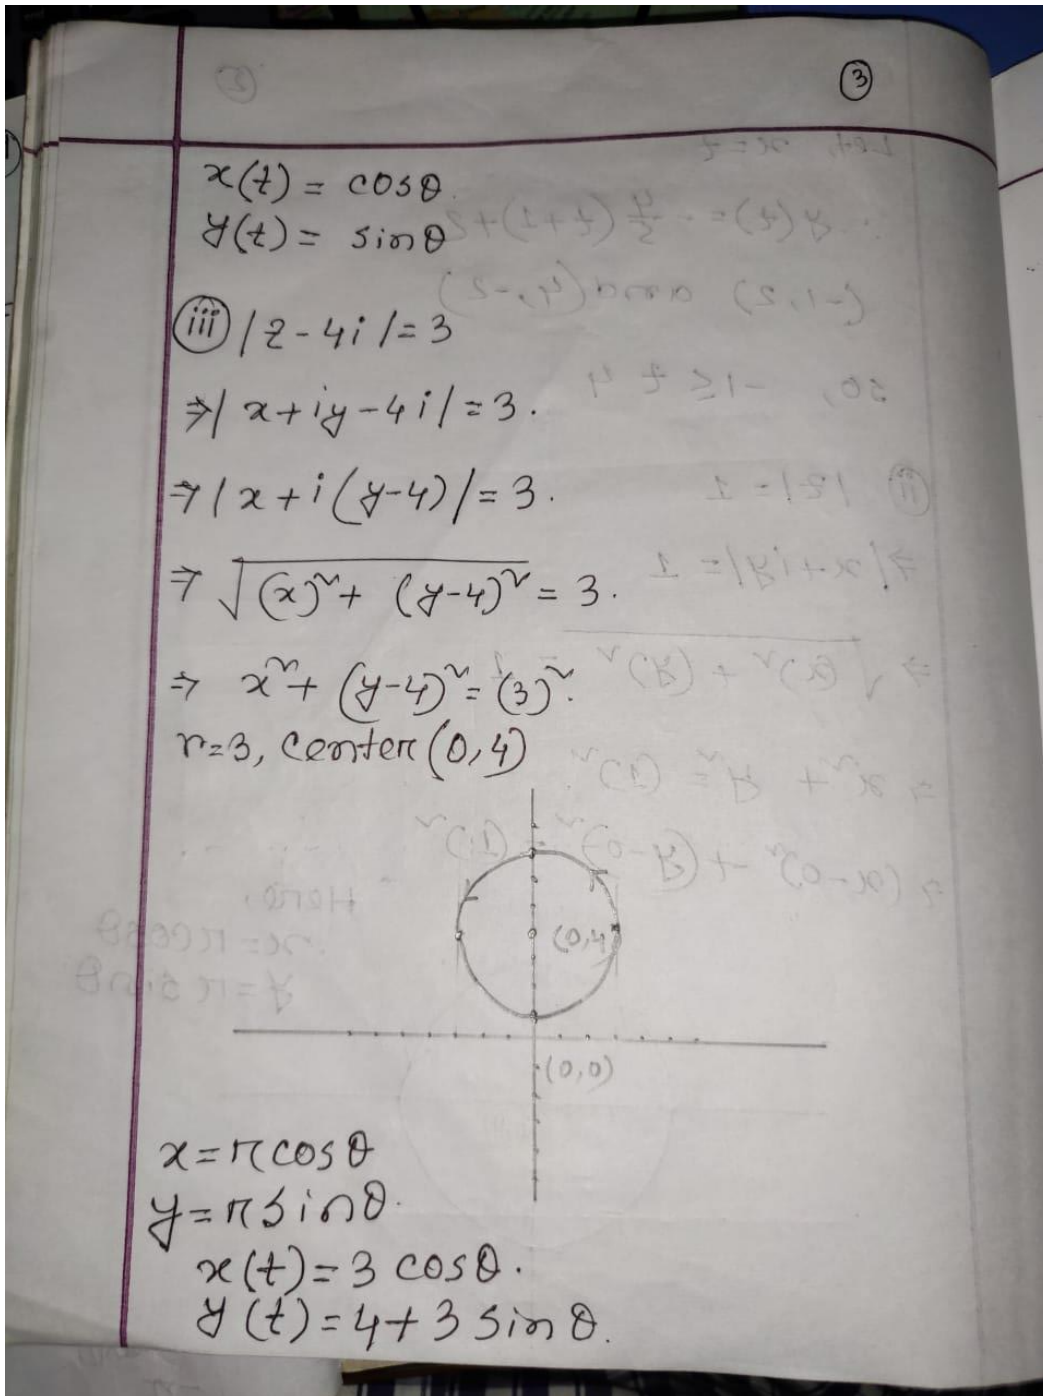 ③
x(t) = cosθ.
y(t) = sinθ
(iii) |z-4i|=3
⇒| x+iy-4i|=3.
⇒|x+i(y-4)|=3.
⇒ √(x)²+ (y-4)² = 3.
⇒ x²+ (y-4)²=(3)².
r=3, center (0,4)
(0,4)
(0,0)
x=rcosθ
y=rsinθ.
x(t)=3 cosθ.
y(t)=4+3 sinθ.